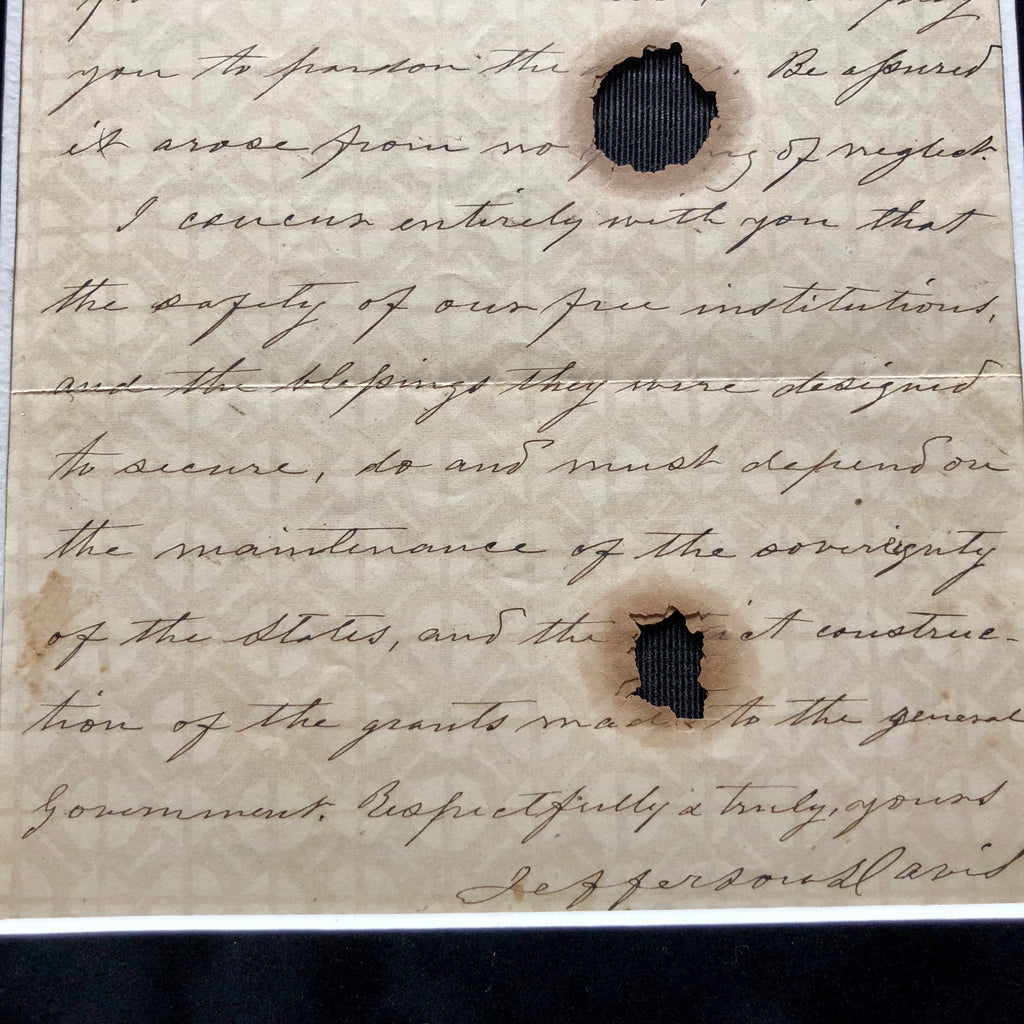 you to pardon the
Be assured
it arose from no
of neglect.
I concur entirely with you that
the safety of our free institutions,
and the blessings they were designed
to secure, do and must depend on
the maintenance of the sovereignty
of the States, and the
construc-
tion of the grants made to the general
Government. Respectfully & truly, yours
Jefferson Davis